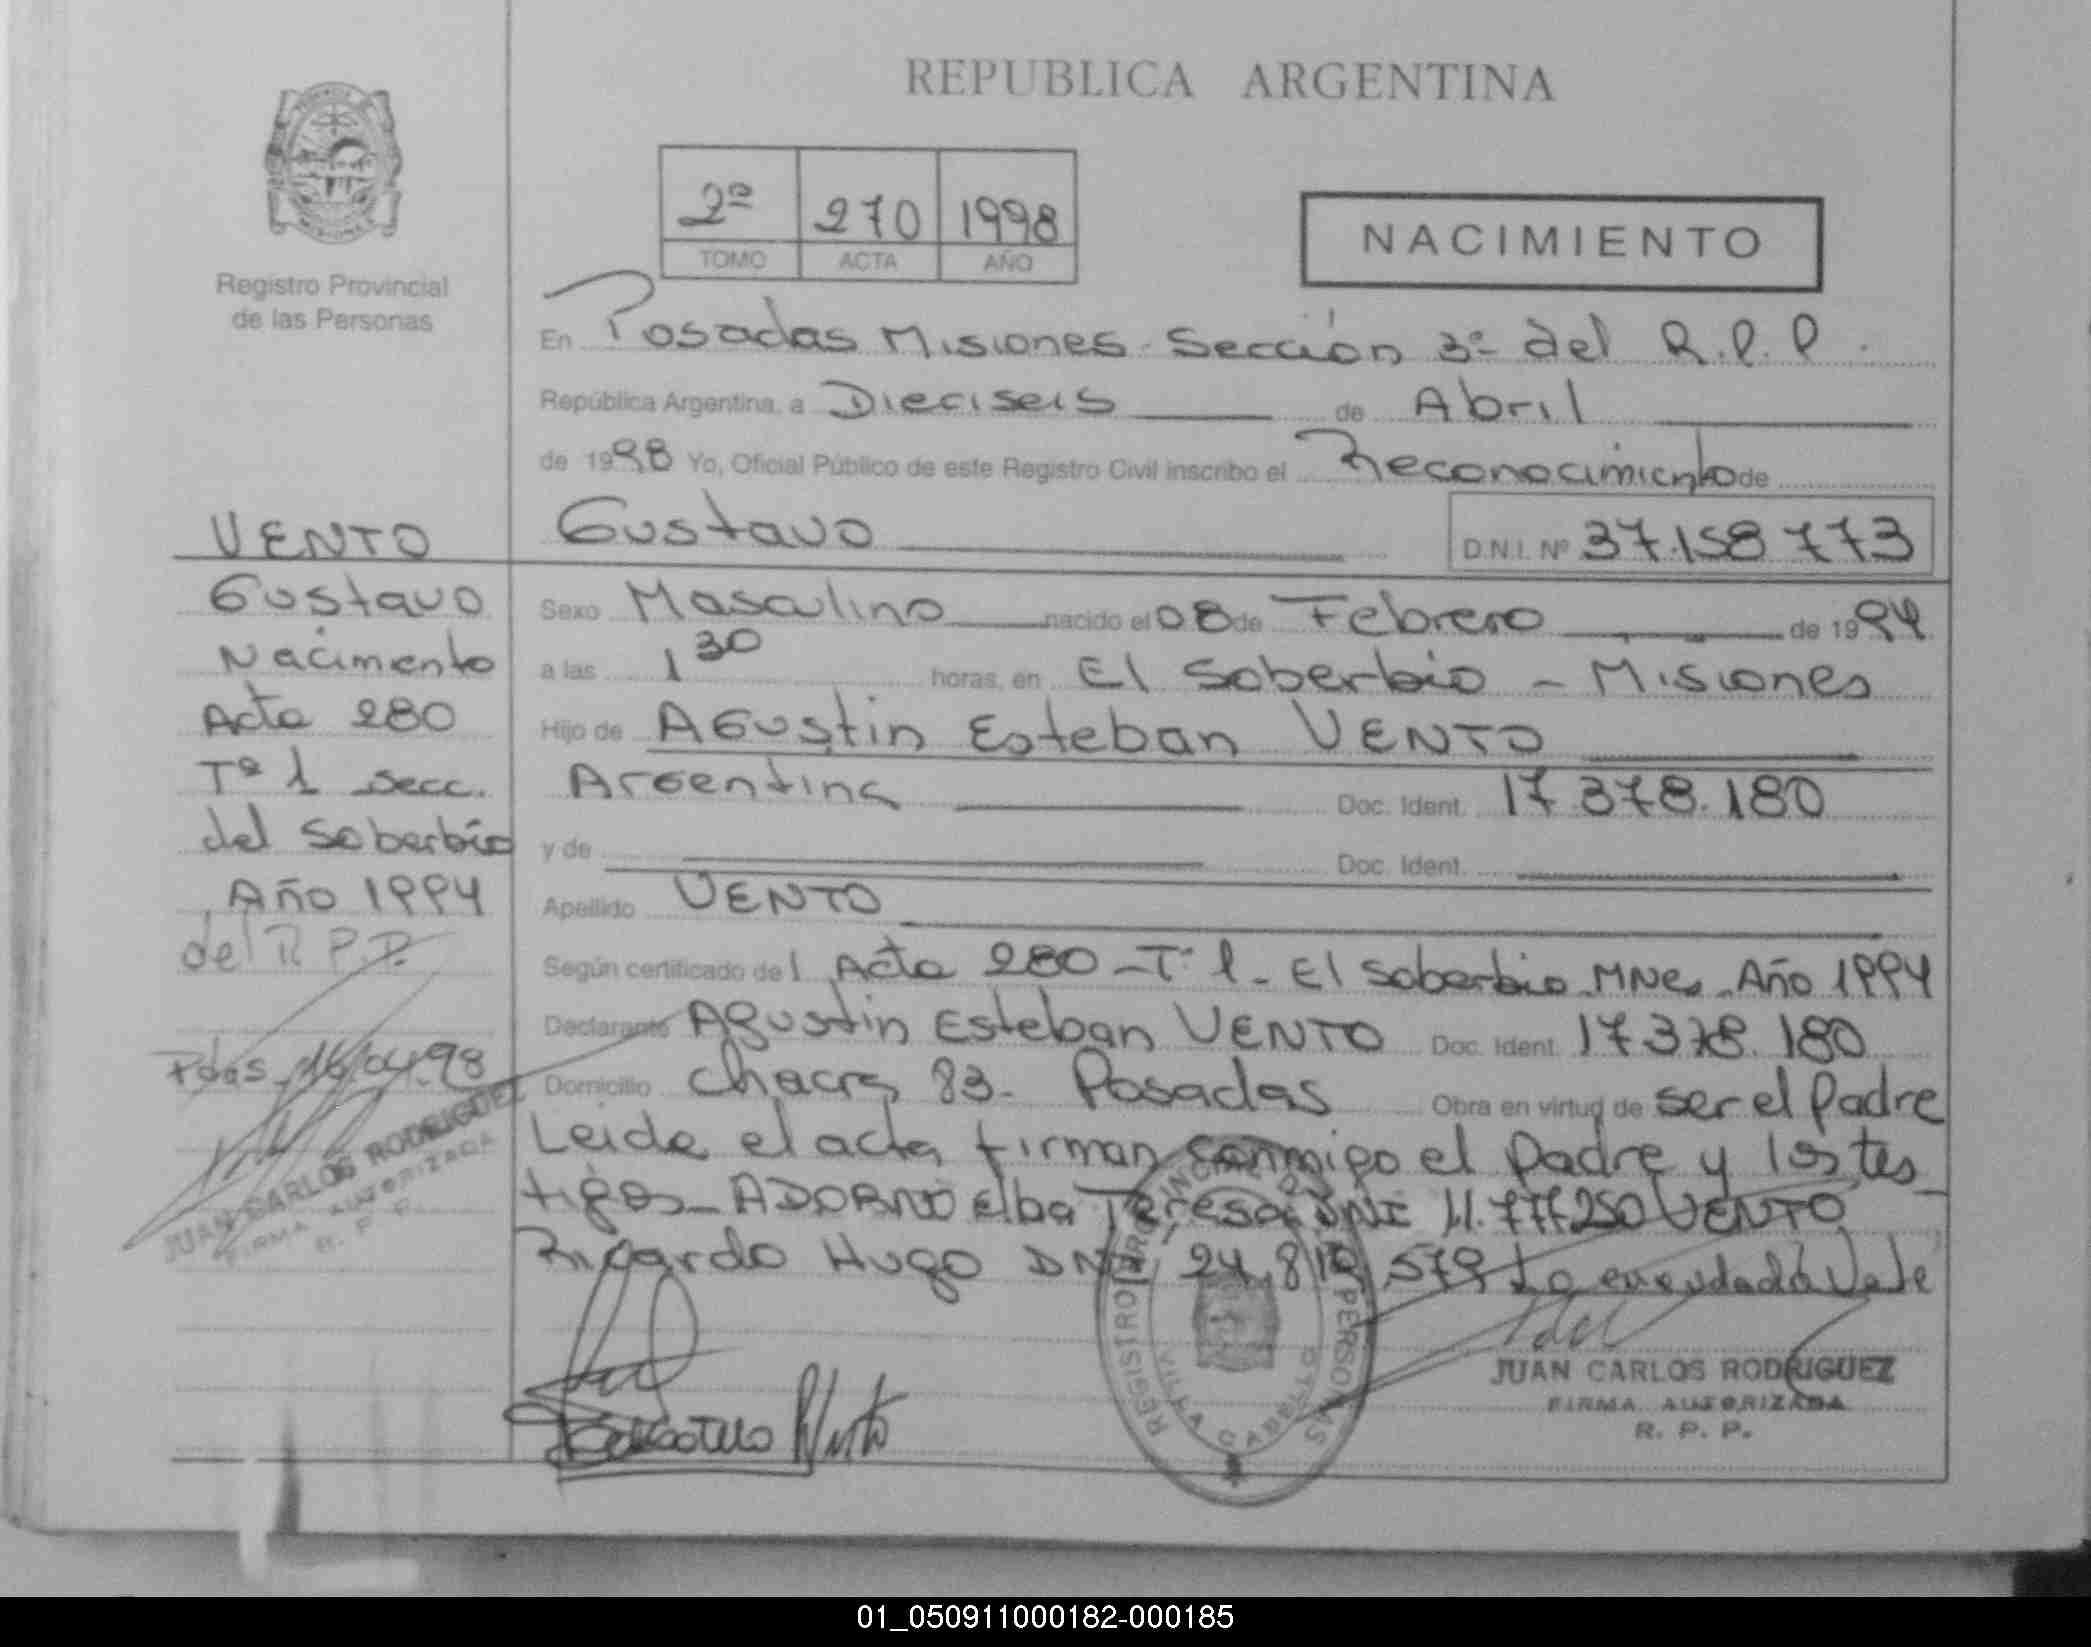 REPUBLICA ARGENTINA
Registro Provincial
de las Personas
2º 270 1998
TOMO ACTA AÑO
NACIMIENTO
En Posadas Misiones. Sección 3º del R.P.P.
República Argentina, a Dieciseis de Abril
de 1998 Yo, Oficial Público de este Registro Civil inscribo el Reconocimiento de
Gustavo D.N.I. Nº 37.158.773
Sexo Masculino nacido el 08 de Febrero de 1994
a las 1 30 horas, en El Soberbio - Misiones
Hijo de AGustin Esteban VENTO
Argentina Doc. Ident. 17.378.180
y de Doc. Ident.
Apellido VENTO
Según certificado del Acta 280 - Tº 1 - El Soberbio - MNes - Año 1994
Declarante Agustin Esteban VENTO Doc. Ident. 17.378.180
Domicilio Chacra 83. Posadas Obra en virtud de ser el Padre
Leida el acta firman conmigo el Padre y los tes
tigos - ADORNO Elba Teresa DNI 11.777.250 VENTO
Ricardo Hugo DNI 24.810.579 Lo enmendado Vale
VENTO
Gustavo
Nacimiento
Acta 280
Tº 1 secc.
del Soberbio
Año 1994
del R.P.P.
Pdas, 16/04/98
JUAN CARLOS RODRIGUEZ
FIRMA AUTORIZADA
R. P. P.
VILLA CABELLO
JUAN CARLOS RODRIGUEZ
FIRMA AUTORIZADA
R. P. P.
01_050911000182-000185